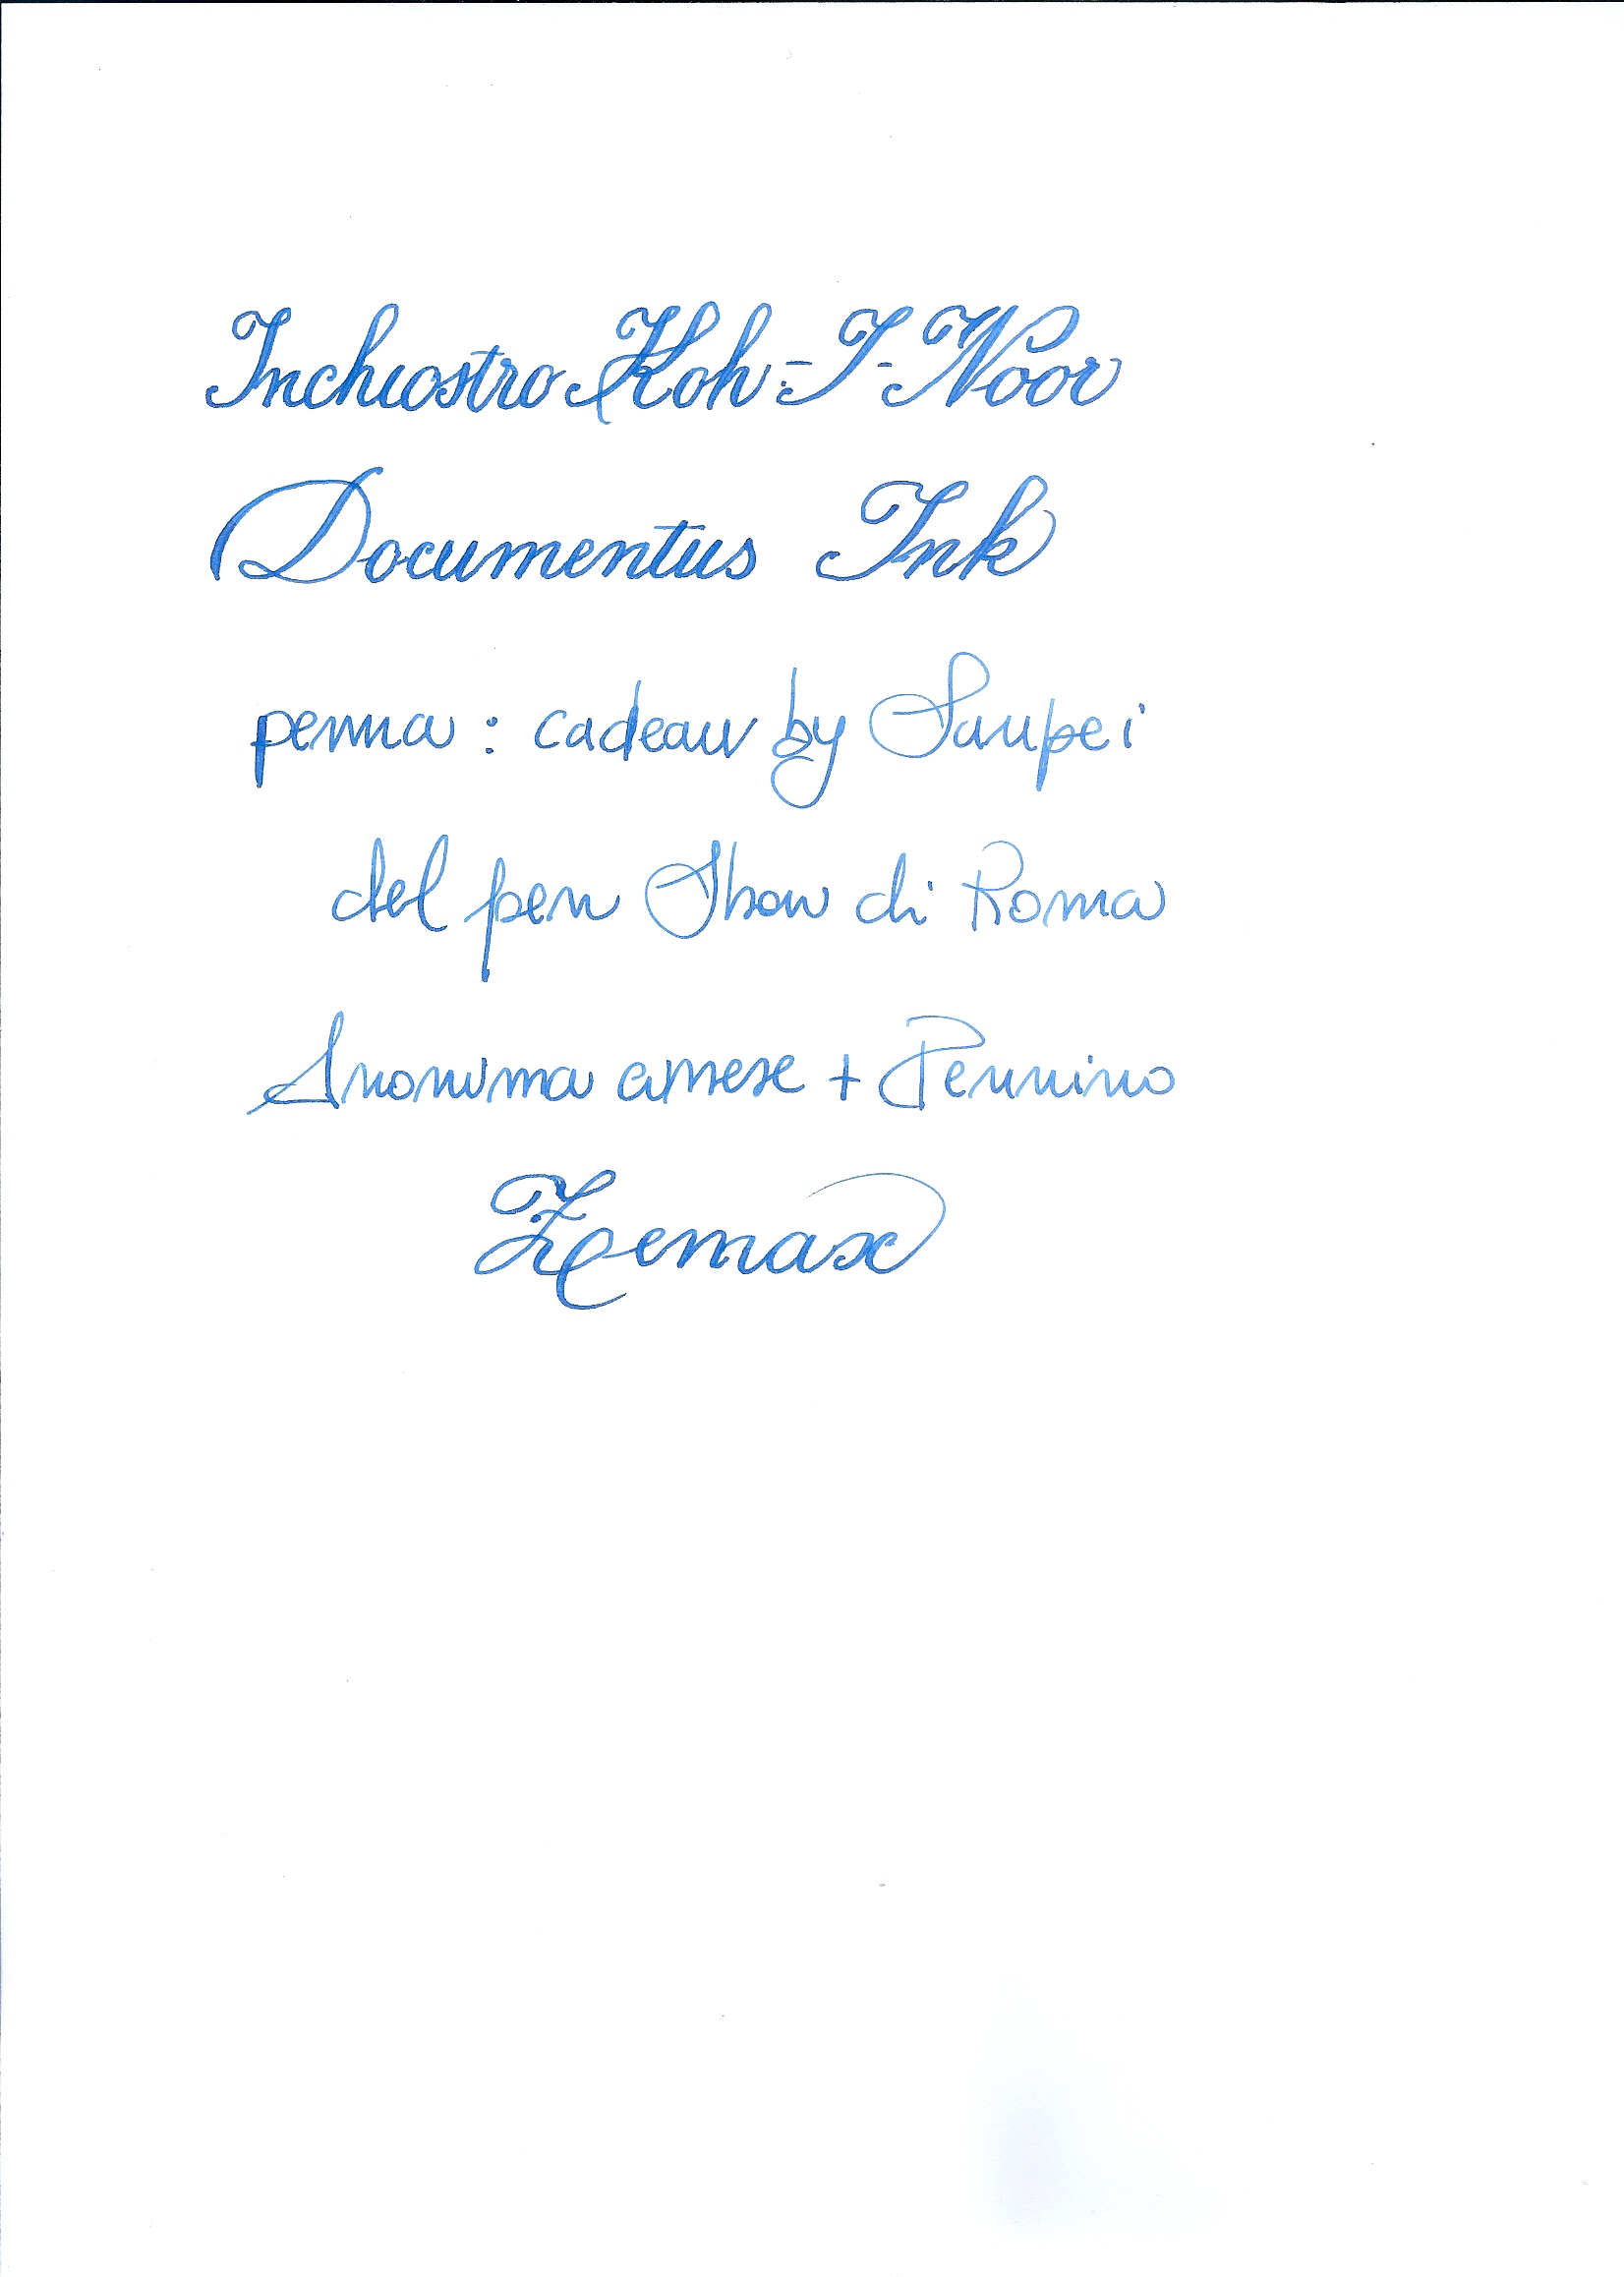 Inchiostro Koh-I-Noor
Documentus Ink
penna: cadeau by Sanpei
del pen Show di Roma
Anonima cinese + Pennino
Zoemax